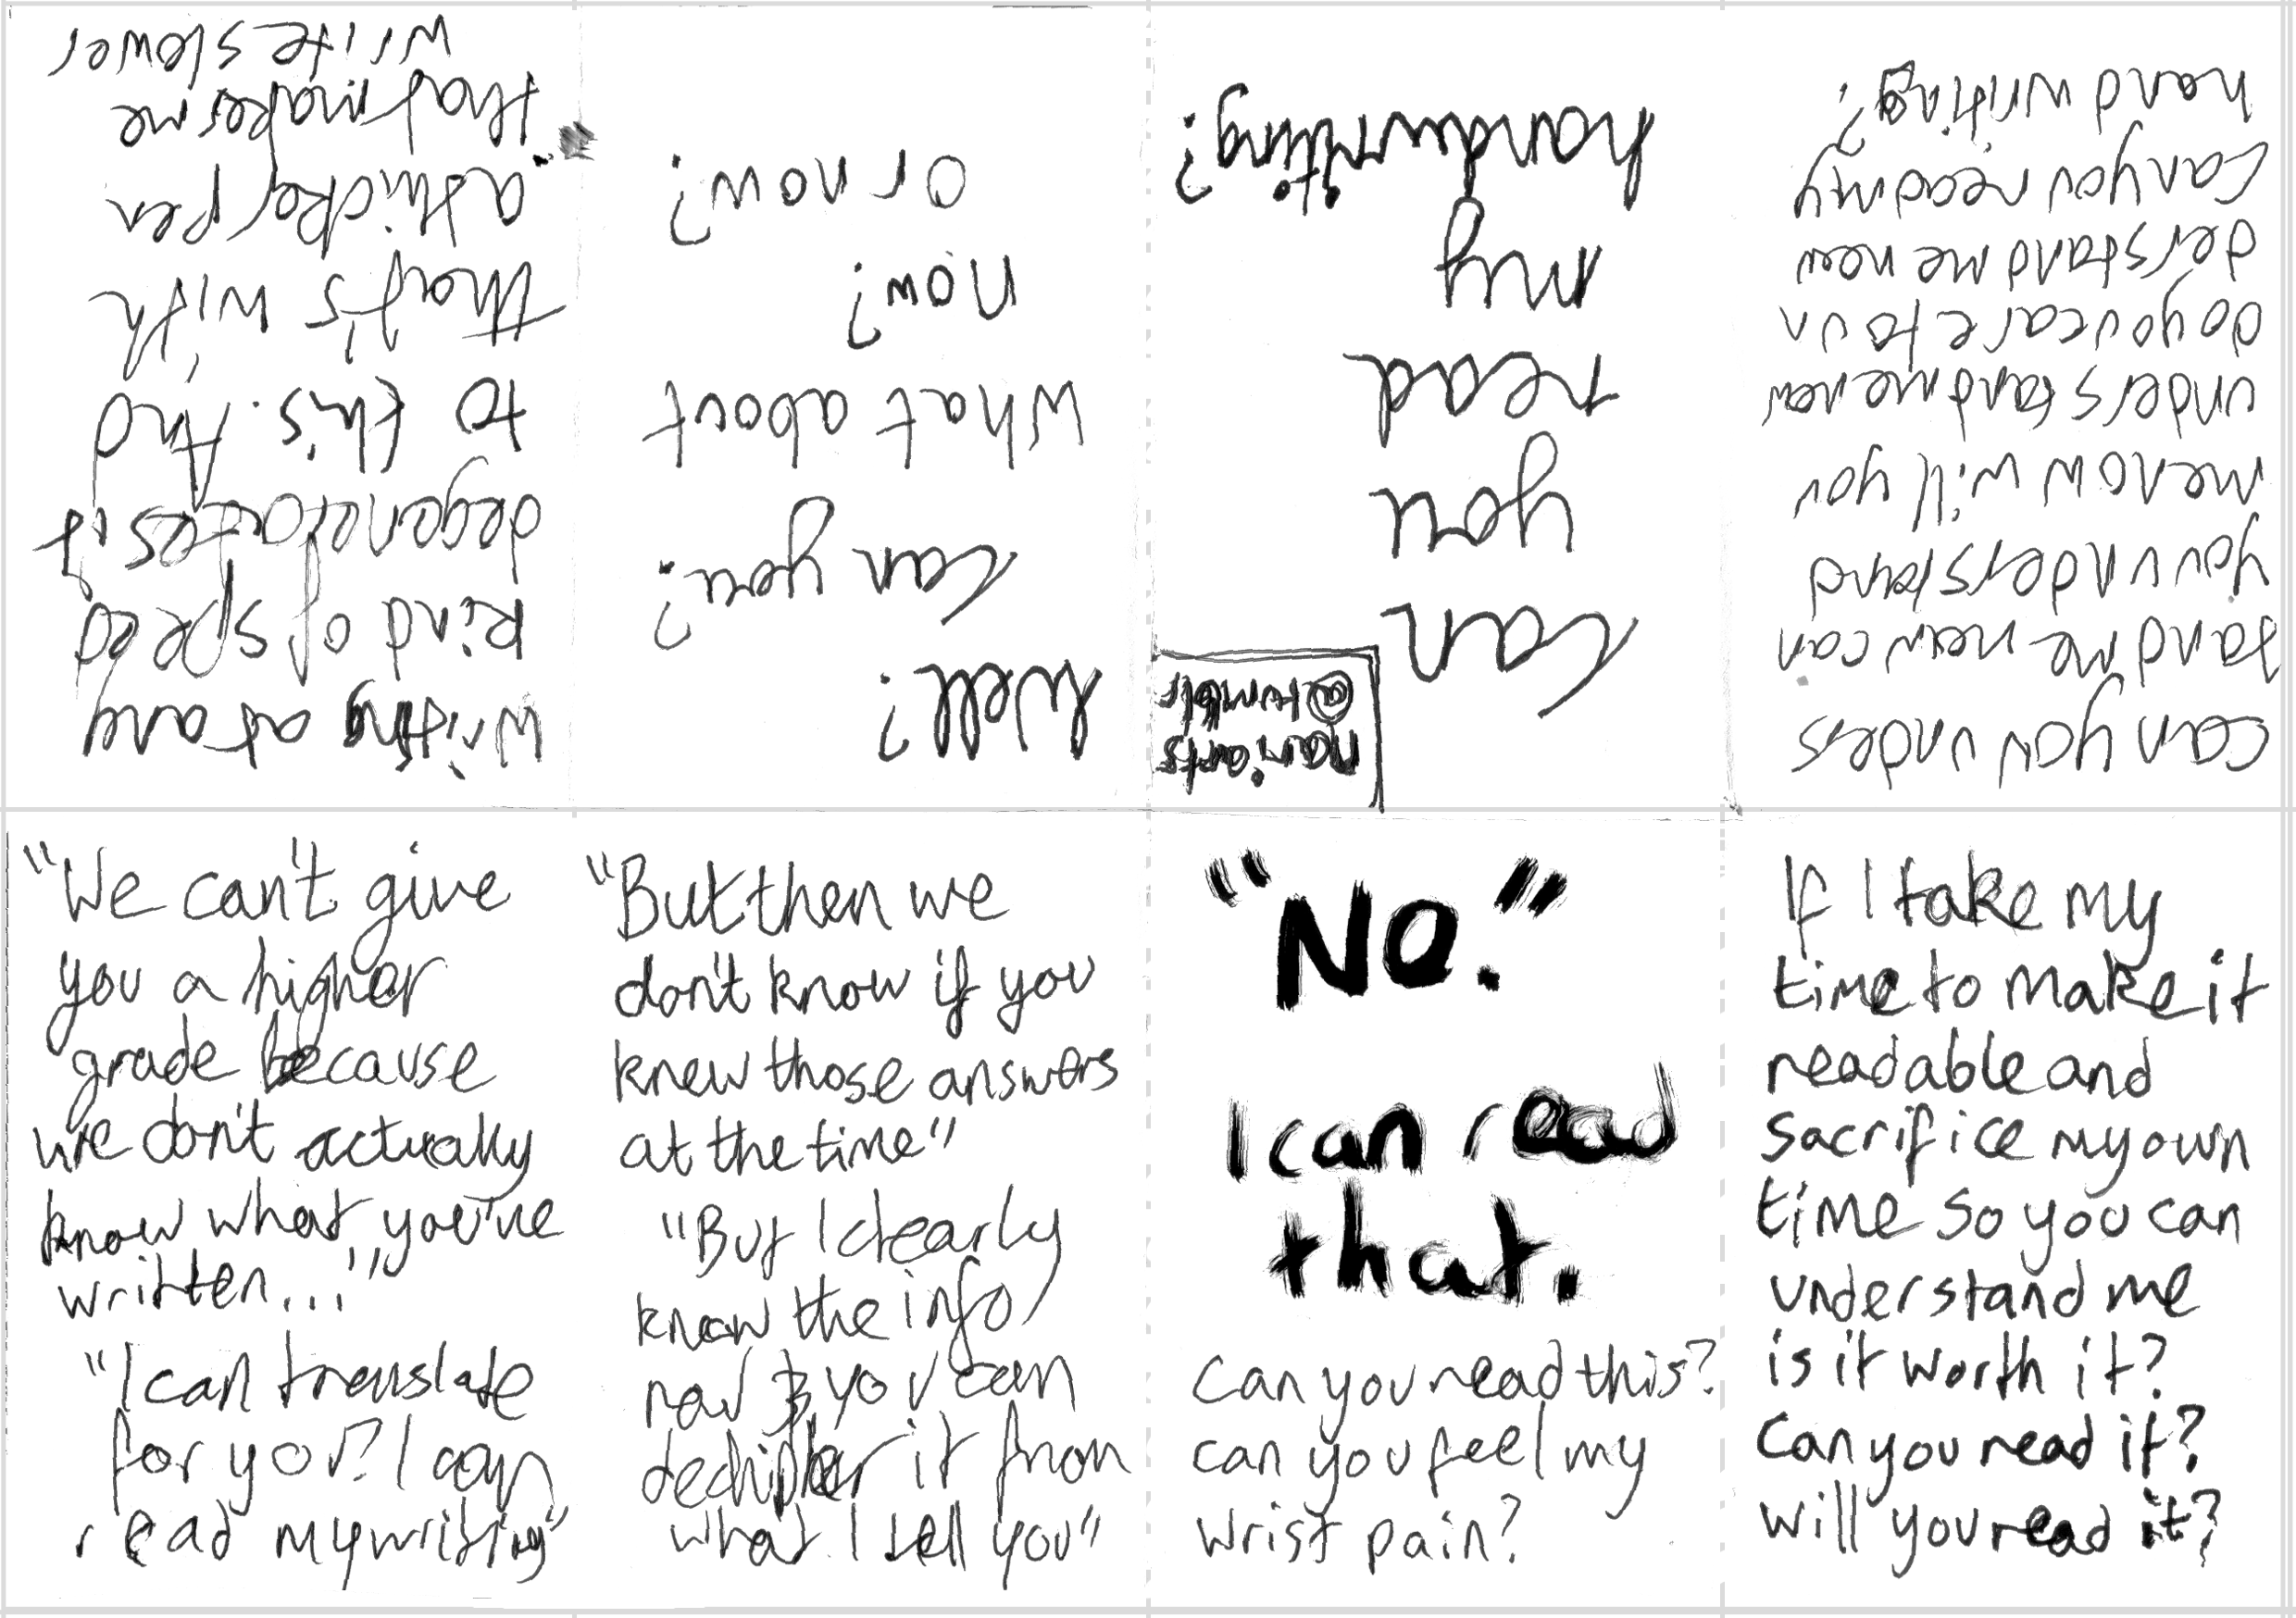 can
you
read
my
handwriting?
naniarts
@tumblr
Well?
can you?
what about
now?
or now?
writing at any
kind of speed
degenerates it
to this. And
that's with
a thicker pen
that makes me
write slower
"We can't give
you a higher
grade because
we don't actually
know what you've
written..."
"I can translate
for you? I can
read my writing"
"But then we
don't know if you
knew those answers
at the time"
"But I clearly
know the info
now & you can
dechipher it from
what I tell you"
"No."
I can read
that.
can you read this?
can you feel my
wrist pain?
If I take my
time to make it
readable and
sacrifice my own
time so you can
understand me
is it worth it?
Can you read it?
will you read it?
can you unders
tand me now can
you understand
me now will you
understand me now
do you care to un
derstand me now
can you read my
handwriting?